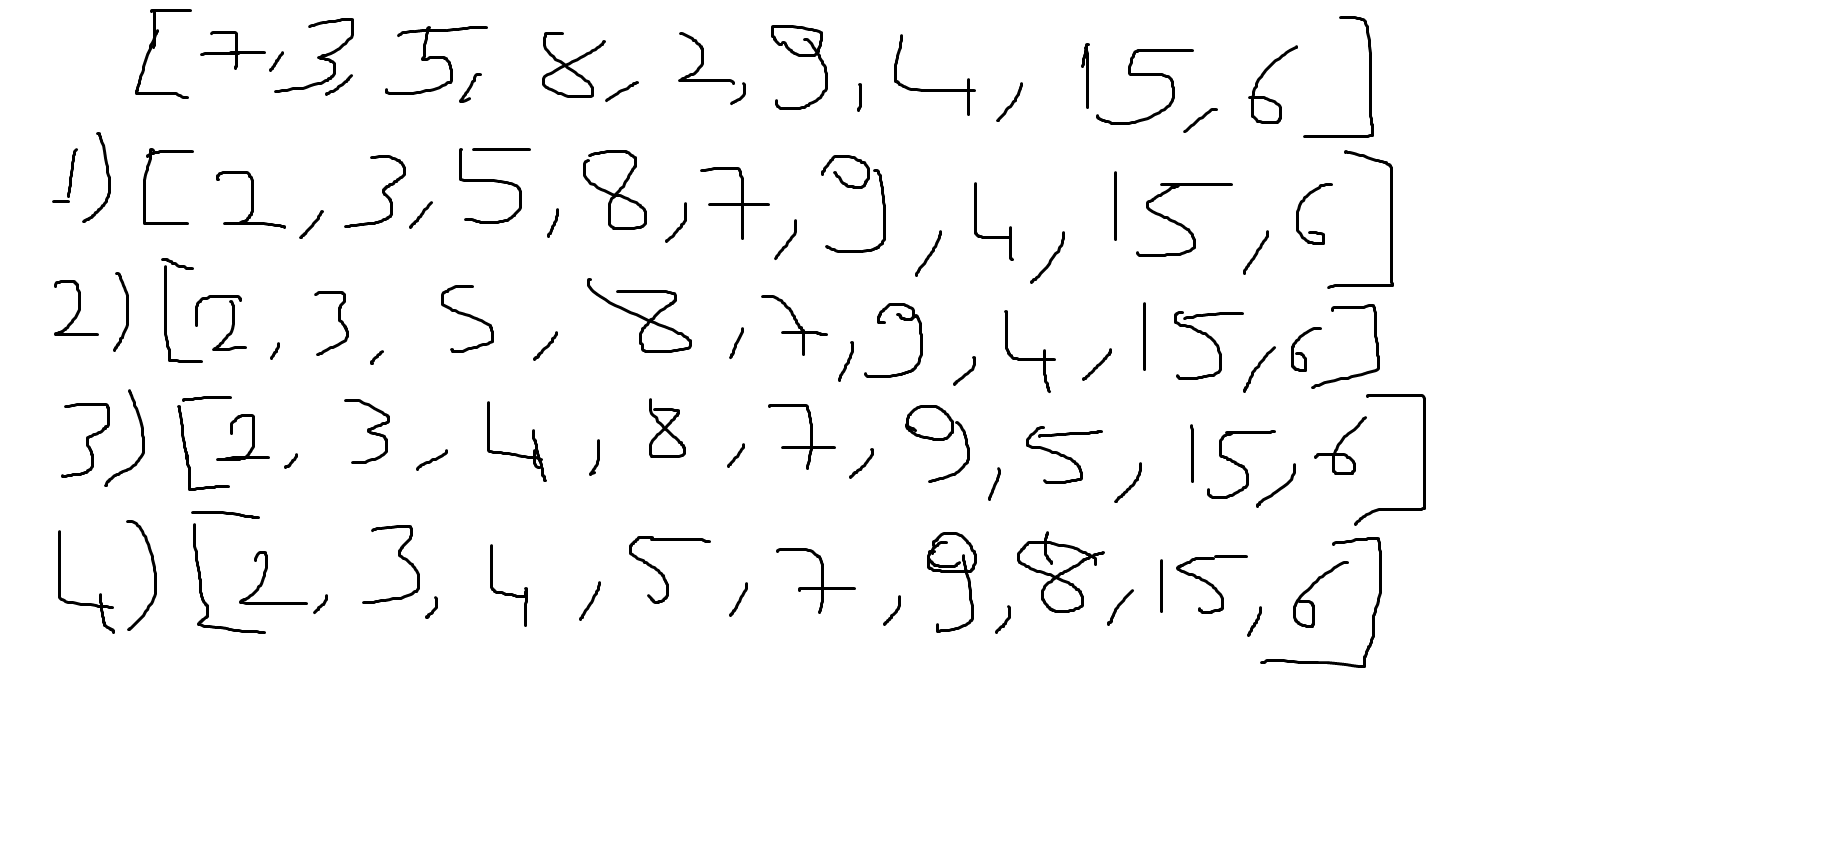 [7,3,5,8,2,9,4,15,6]
1) [2,3,5,8,7,9,4,15,6]
2) [2,3,5,8,7,9,4,15,6]
3) [2,3,4,8,7,9,5,15,6]
4) [2,3,4,5,7,9,8,15,6]